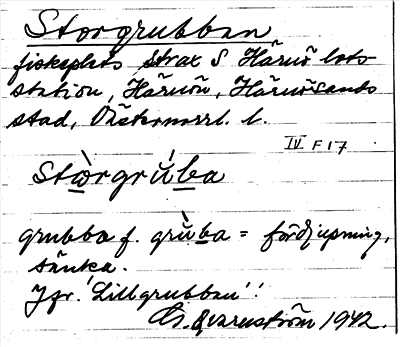 Storgrubban
fiskeplats strax S Härnö lots-
station, Härnön, Härnösands
stad, Västernorrl. l.
IV F 17
stòrgrúba
grubba f. grùba = fördjupning,
sänka.
Jfr. "Lillgrubban"!
1942.